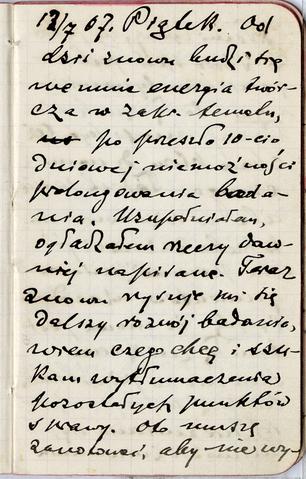 12/7 07. Piątek. Od
dziś znowu budzi się
we mnie energia twór-
cza w zakr. tematu,
po przeszło 10-cio
dniowej niemożności
prolongowania bada-
nia. Uzupełniałam,
oglądałem rzeczy daw-
niej napisane. Teraz
znowu rysuje mi się
dalszy rozwój badania,
wiem czego chcę i szu-
kam wytłumaczenia
pozostałych punktów
sprawy. Oto muszę
zanotować, aby nie wy-